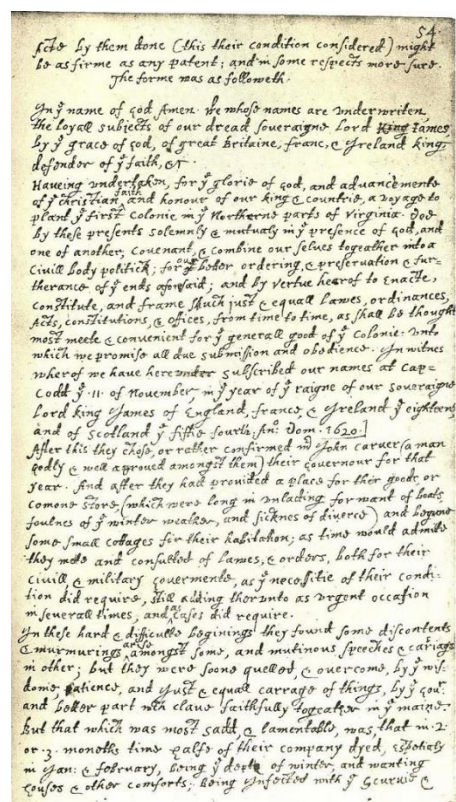 54
Acts by them done (this their condition considered) might
be as firme as any patent; and in some respects more sure.
The forme was as followeth.
In yͤ name of god Amen. We whose names are underwriten,
the loyall subjects of our dread soveraigne Lord King James
by yͤ grace of God, of great Britaine, franc, & Ireland king,
defender of yͤ faith, &c
Haveing undertaken, for yͤ glorie of God, and advancemente
of yͤ christian faith and honour of our king & countrie, a voyage to
plant yͤ first Colonie in yͤ Northerne parts of Virginia. Doe
by these presents solemnly & mutualy in yͤ presence of God, and
one of another; Covenant, & combine our selves togeather into a
Civill body politick; for our better ordering, & preservation & fur-
therance of yͤ ends aforesaid; and by vertue hearof to Enacte,
constitute, and frame shuch just & equall Lawes, ordinances,
Acts, constitutions, & offices, from time to time, as shall be thought
most meete & convenient for yͤ generall good of yͤ Colonie: unto
which we promise all due submission and obedience. In witnes
wherof we have hereunder subscribed our names at Cap-
Codd yͤ .11. of November, in yͤ year of yͤ raigne of our soveraigne
Lord king James of England, france, & Ireland yͤ eighteenth
and of Scotland yͤ fiftie fourth. Anͦ: Dom. 1620.]
After this they chose, or rather confirmed mͬ John Carver (a man
godly & well aproved amongst them) their Governour for that
year. And after they had provided a place for their goods, or
comone store, (which were long in unlading for want of boats,
foulnes of yͤ winter weather, and sicknes of diverce) and begune
some small cottages for their habitation; as time would admitte
they mette and consulted of lawes, & orders, both for their
civill & military Govermente, as yͤ necessitie of their condi-
tion did require, still adding therunto as urgent occasion
in severall times, and as cases did require.
In these hard & difficulte beginings they found some discontents
& murmurings arise amongst some, and mutinous speeches & cariags
in other; but they were soone quelled, & overcome, by yͤ wis-
dome, patience, and just & equall carrage of things, by yͤ Govͬ
and better part wch clave faithfully togeather in yͤ maine.
But that which was most sadd, & lamentable, was, that in .2.
or .3. moneths time halfe of their company dyed, espetialy
in Jan: & february, being yͤ depth of winter, and wanting
houses & other comforts; being Infected with yͤ Scurvie &